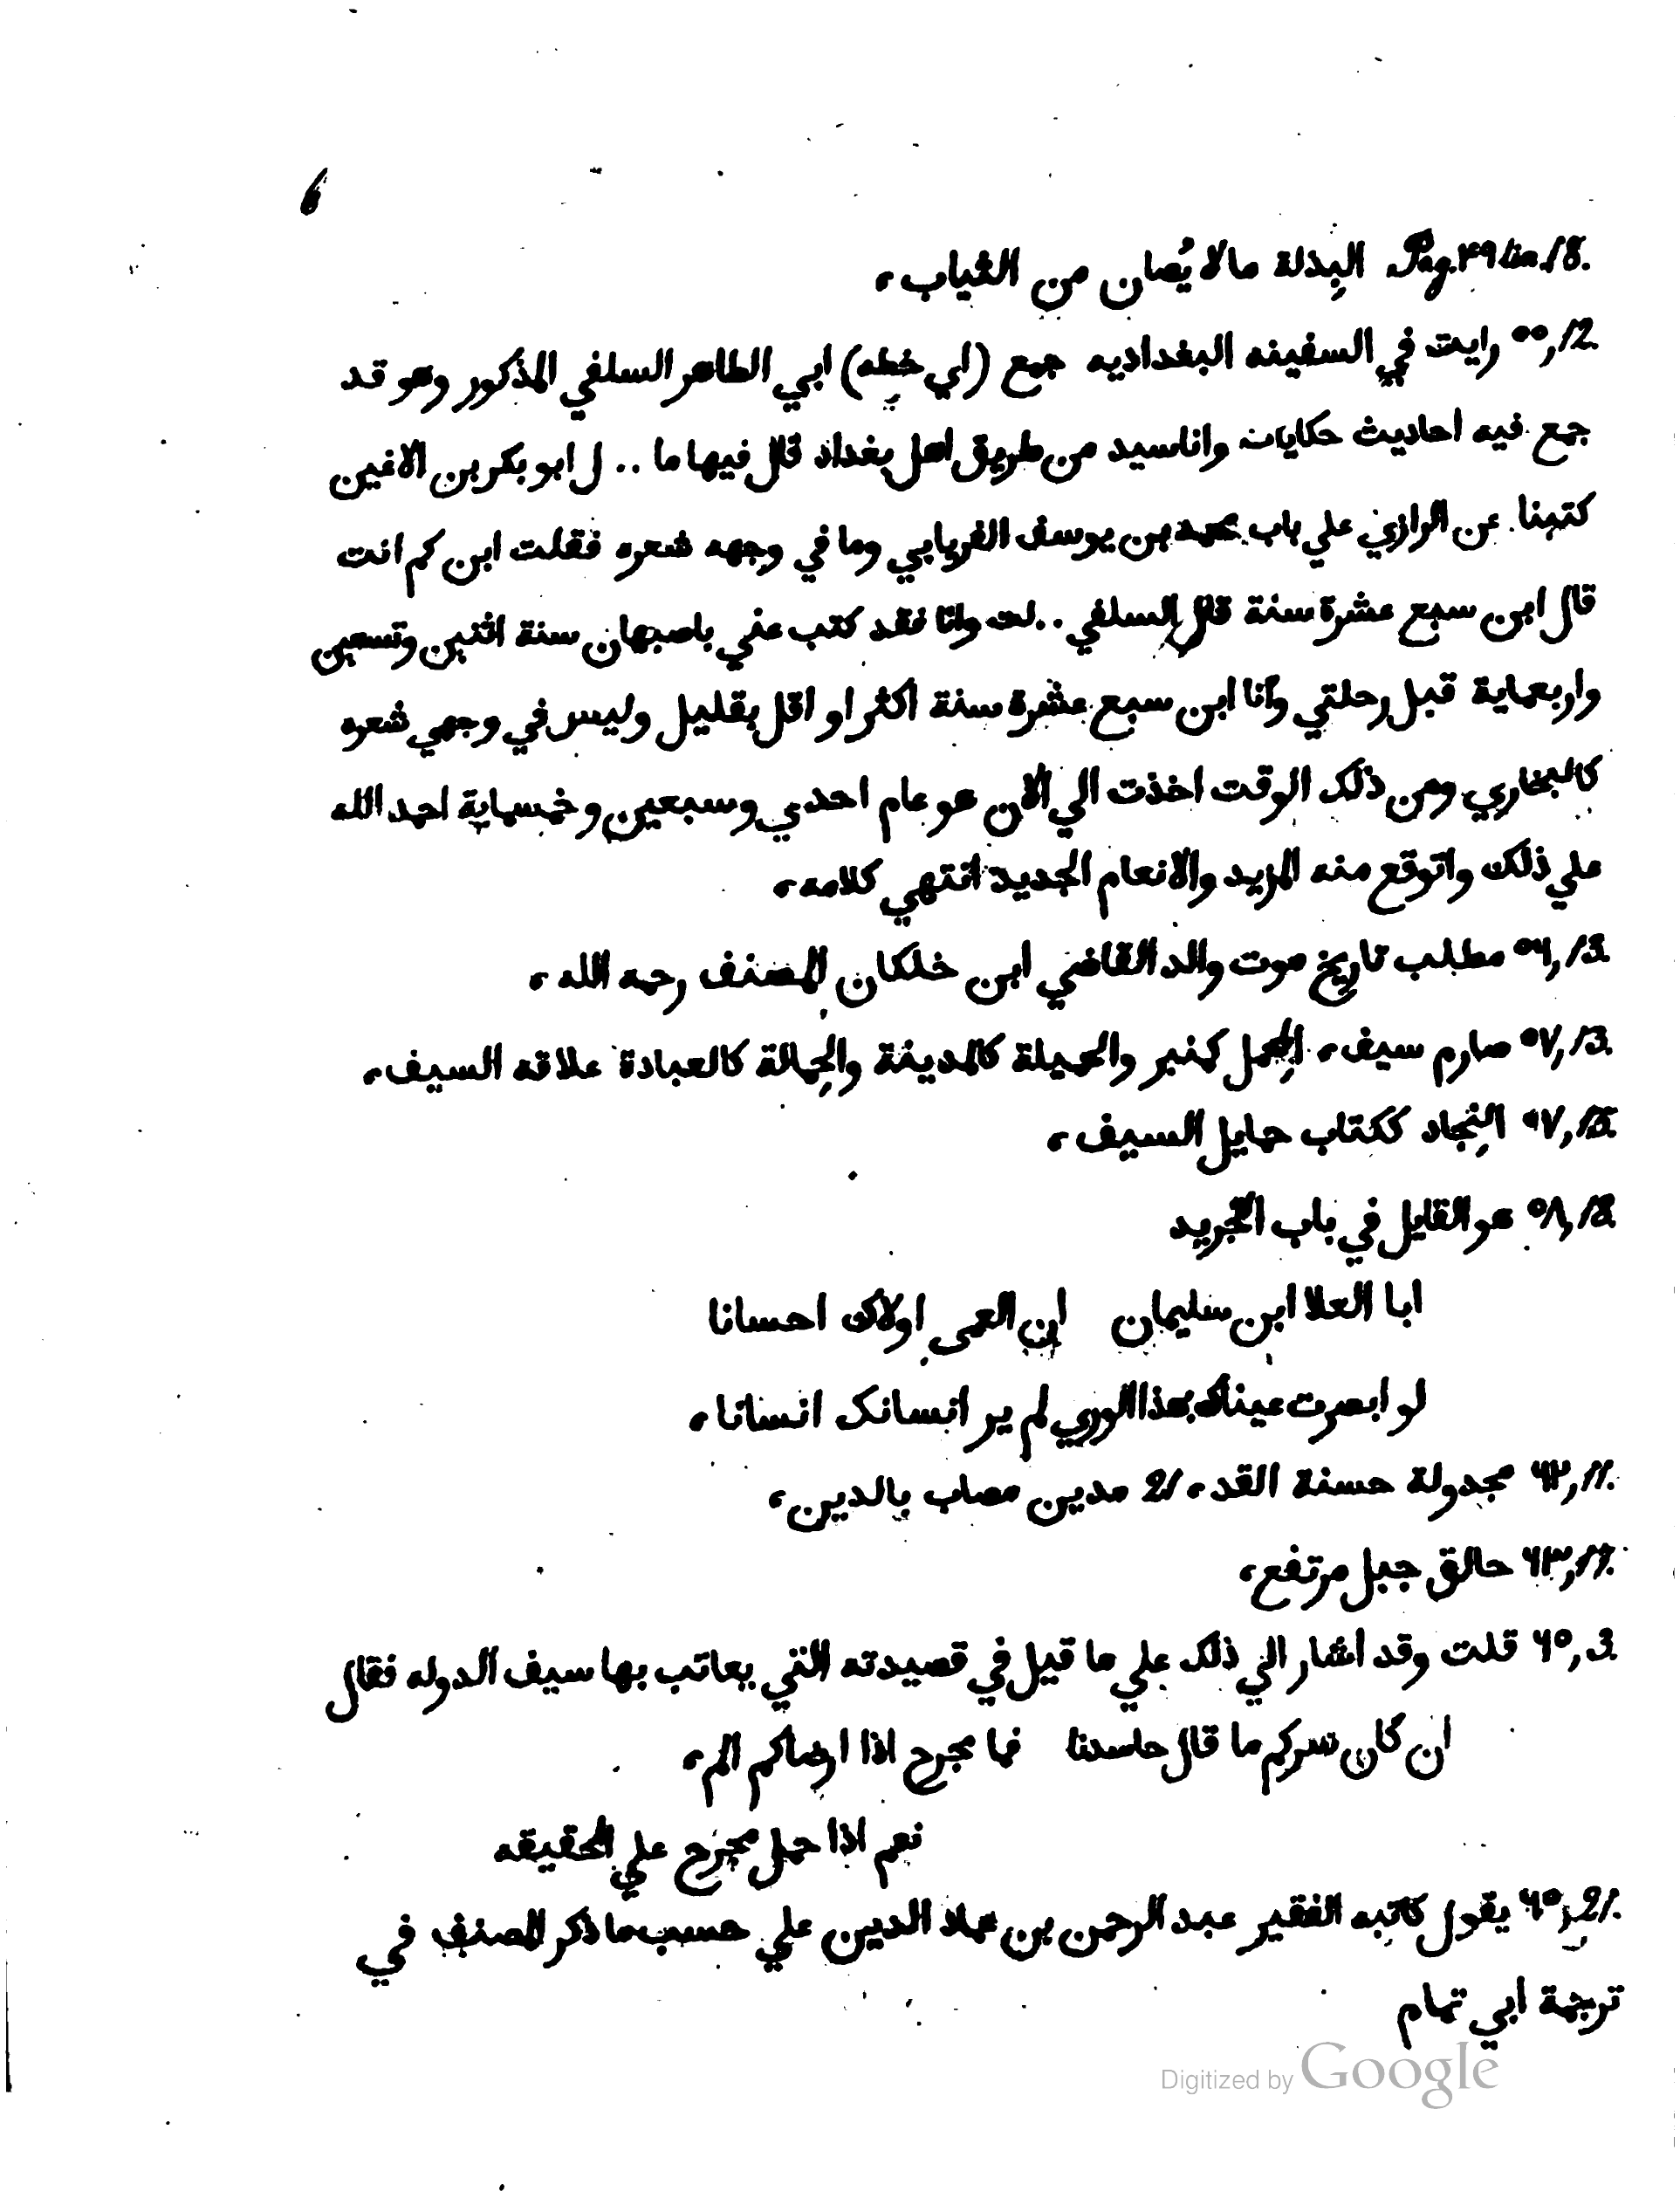 6
Pag. ٤٩ lin. 18. البِذلة ما لا يُصان من الثياب،
٥٥, 12. رايت في السفينه البغداديه جمع (اي خطه) ابي الطاهر السلفي المذكور وهو قد
جمع فيه احاديث حكايات واناسيد من طريق اهل بغداد قال فيها ما .. ل ابو بكر بن الاغين
كتبنا عن الرازي علي باب محمد بن يوسف الفريابي وما في وجهه شعره فقلت ابن كم انت
قال ابن سبع عشرة سنة قال السلفي .. لت وانا فقد كتب عني باصبهان سنة اثنين وتسعين
واربعماية قبل رحلتي وانا ابن سبع عشرة سنة اكثر او اقل بقليل وليس في وجهي شعره
كالبخاري ومن ذلك الوقت اخذت الي الان هو عام احدي وسبعين وخمسماية احمد الله
علي ذلك واتوقع منه المزيد والانعام الجديد انتهي كلامه،
٥٦, 13. مطلب تاريخ موت والد القاضي ابن خلكان المصنف رحمه الله،
٥٧, 13. صارم سيف، المِحمل كمنبر والحميلة كالمدينة والحِمالة كالعبادة علاقه السيف،
٥٧, 15. النِجاد ككتاب حمايل السيف،
٥٨, 18. هو القايل في باب التجريد
ابا العلا ابن سليمان ان العمى اولاك احسانا
لو ابصرت عيناك هذا الوري لم ير انسانك انسانا،
٦٢, 11. مجدولة حسنة القد، 21 مدين مصاب بالدين،
٦٣, 11. حالق جبل مرتفع،
٦٥, 3. قلت وقد اشار الي ذلك علي ما قيل في قصيدته التي يعاتب بها سيف الدوله فقال
ان كان سركم ما قال حاسدنا فما بجرح اذا ارضاكم الم،
نعم اذا حمل بجرح علي الحقيقه
٦٥, 21. يقول كاتبه الفقير عبد الرحمن بن عماد الدين علي حسب ما ذكر المصنف في
ترجمة ابي تمام
Digitized by Google